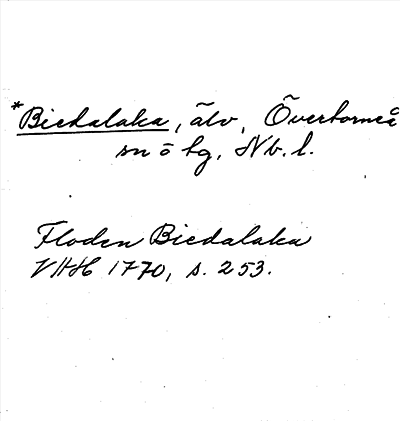 *Biedalaka, älv, Övertorneå
sn o tg, Nb. l.
Floden Biedalaka
VHH 1770, s. 253.